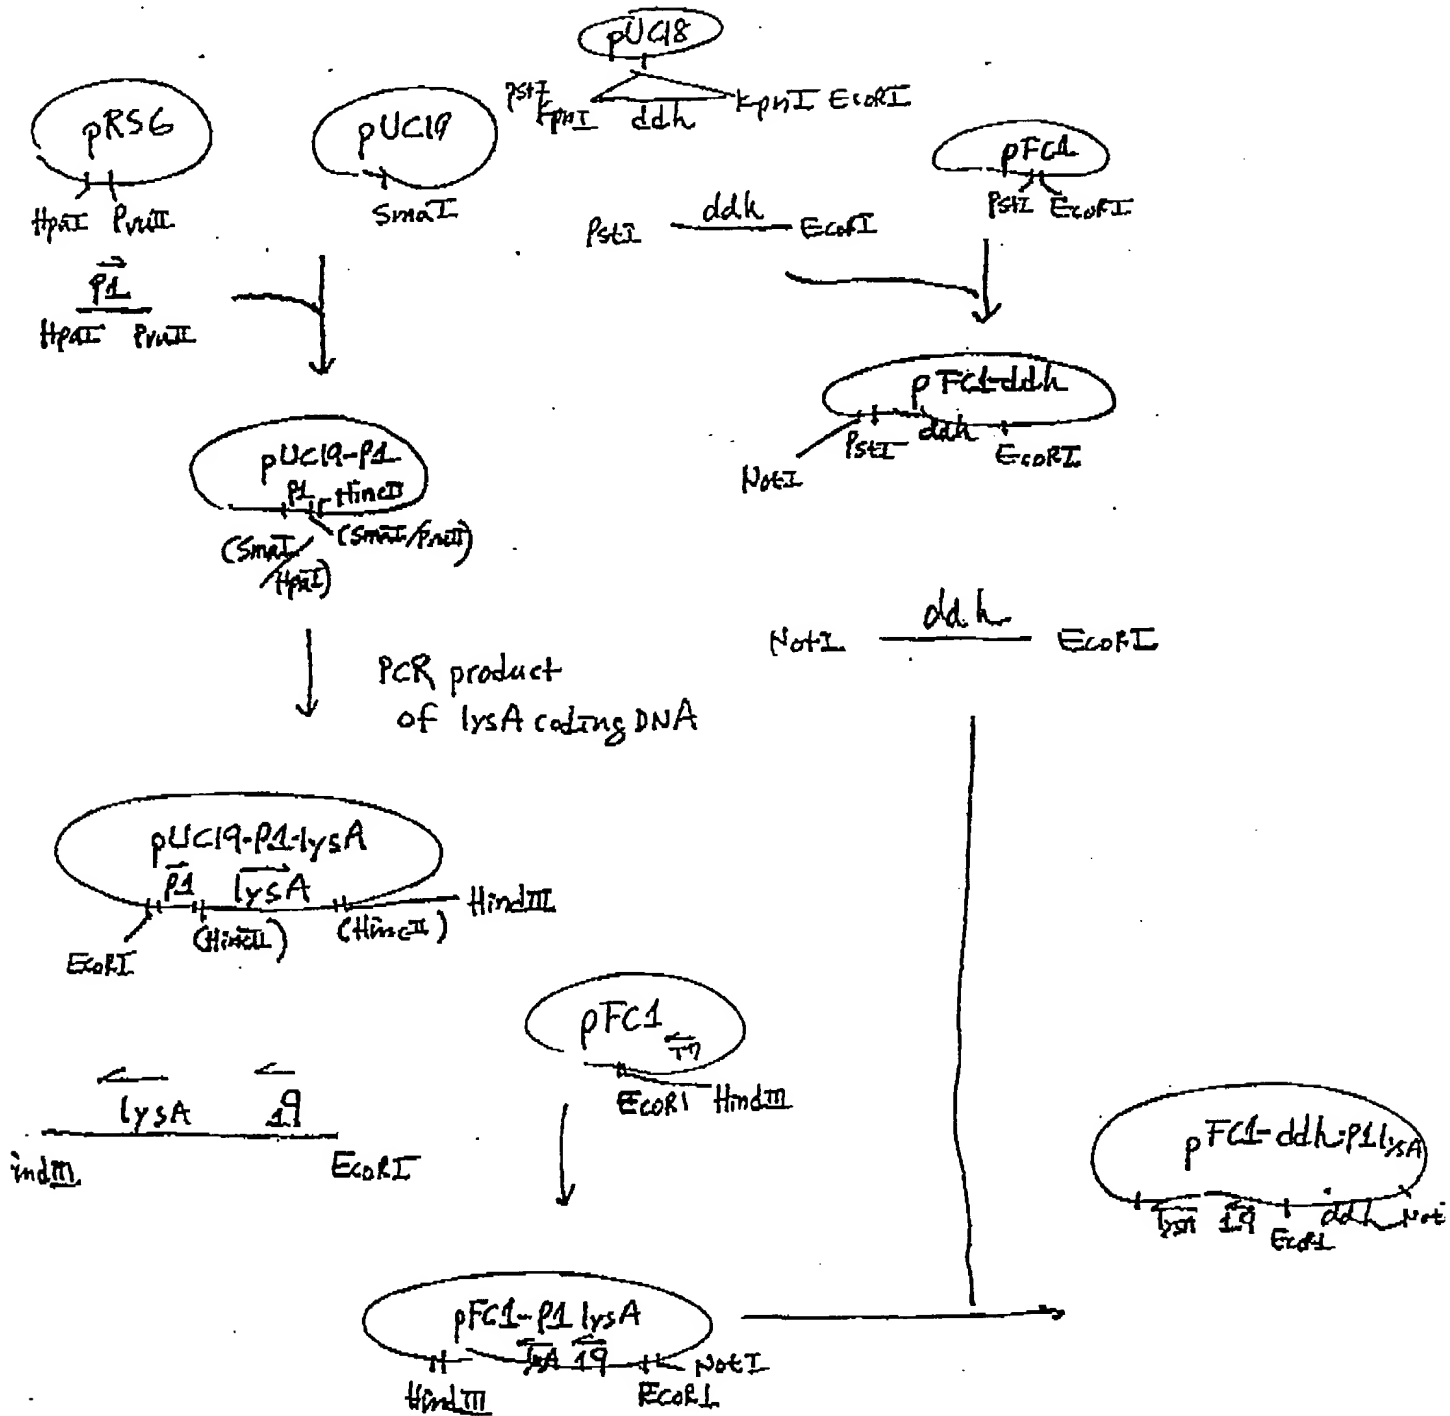 pUC18
PstI
KpnI ddh KpnI EcoRI
pRS6
HpaI PvuII
pUC19
SmaI
pFC1
PstI EcoRI
PstI ddh EcoRI
P1
HpaI PvuII
pUC19-P1
P1 HincII
(SmaI/HpaI) (SmaI/PvuII)
pFC1-ddh
NotI PstI ddh EcoRI
PCR product
of lysA coding DNA
NotI ddh EcoRI
pUC19-P1-lysA
P1 lysA
EcoRI (HincII) (HincII) HindIII
pFC1
EcoRI HindIII
lysA 1q
indIII EcoRI
pFC1-P1 lysA
lysA 1q
HindIII EcoRI NotI
pFC1-ddh-P1lysA
lysA 1q EcoRI ddh Not